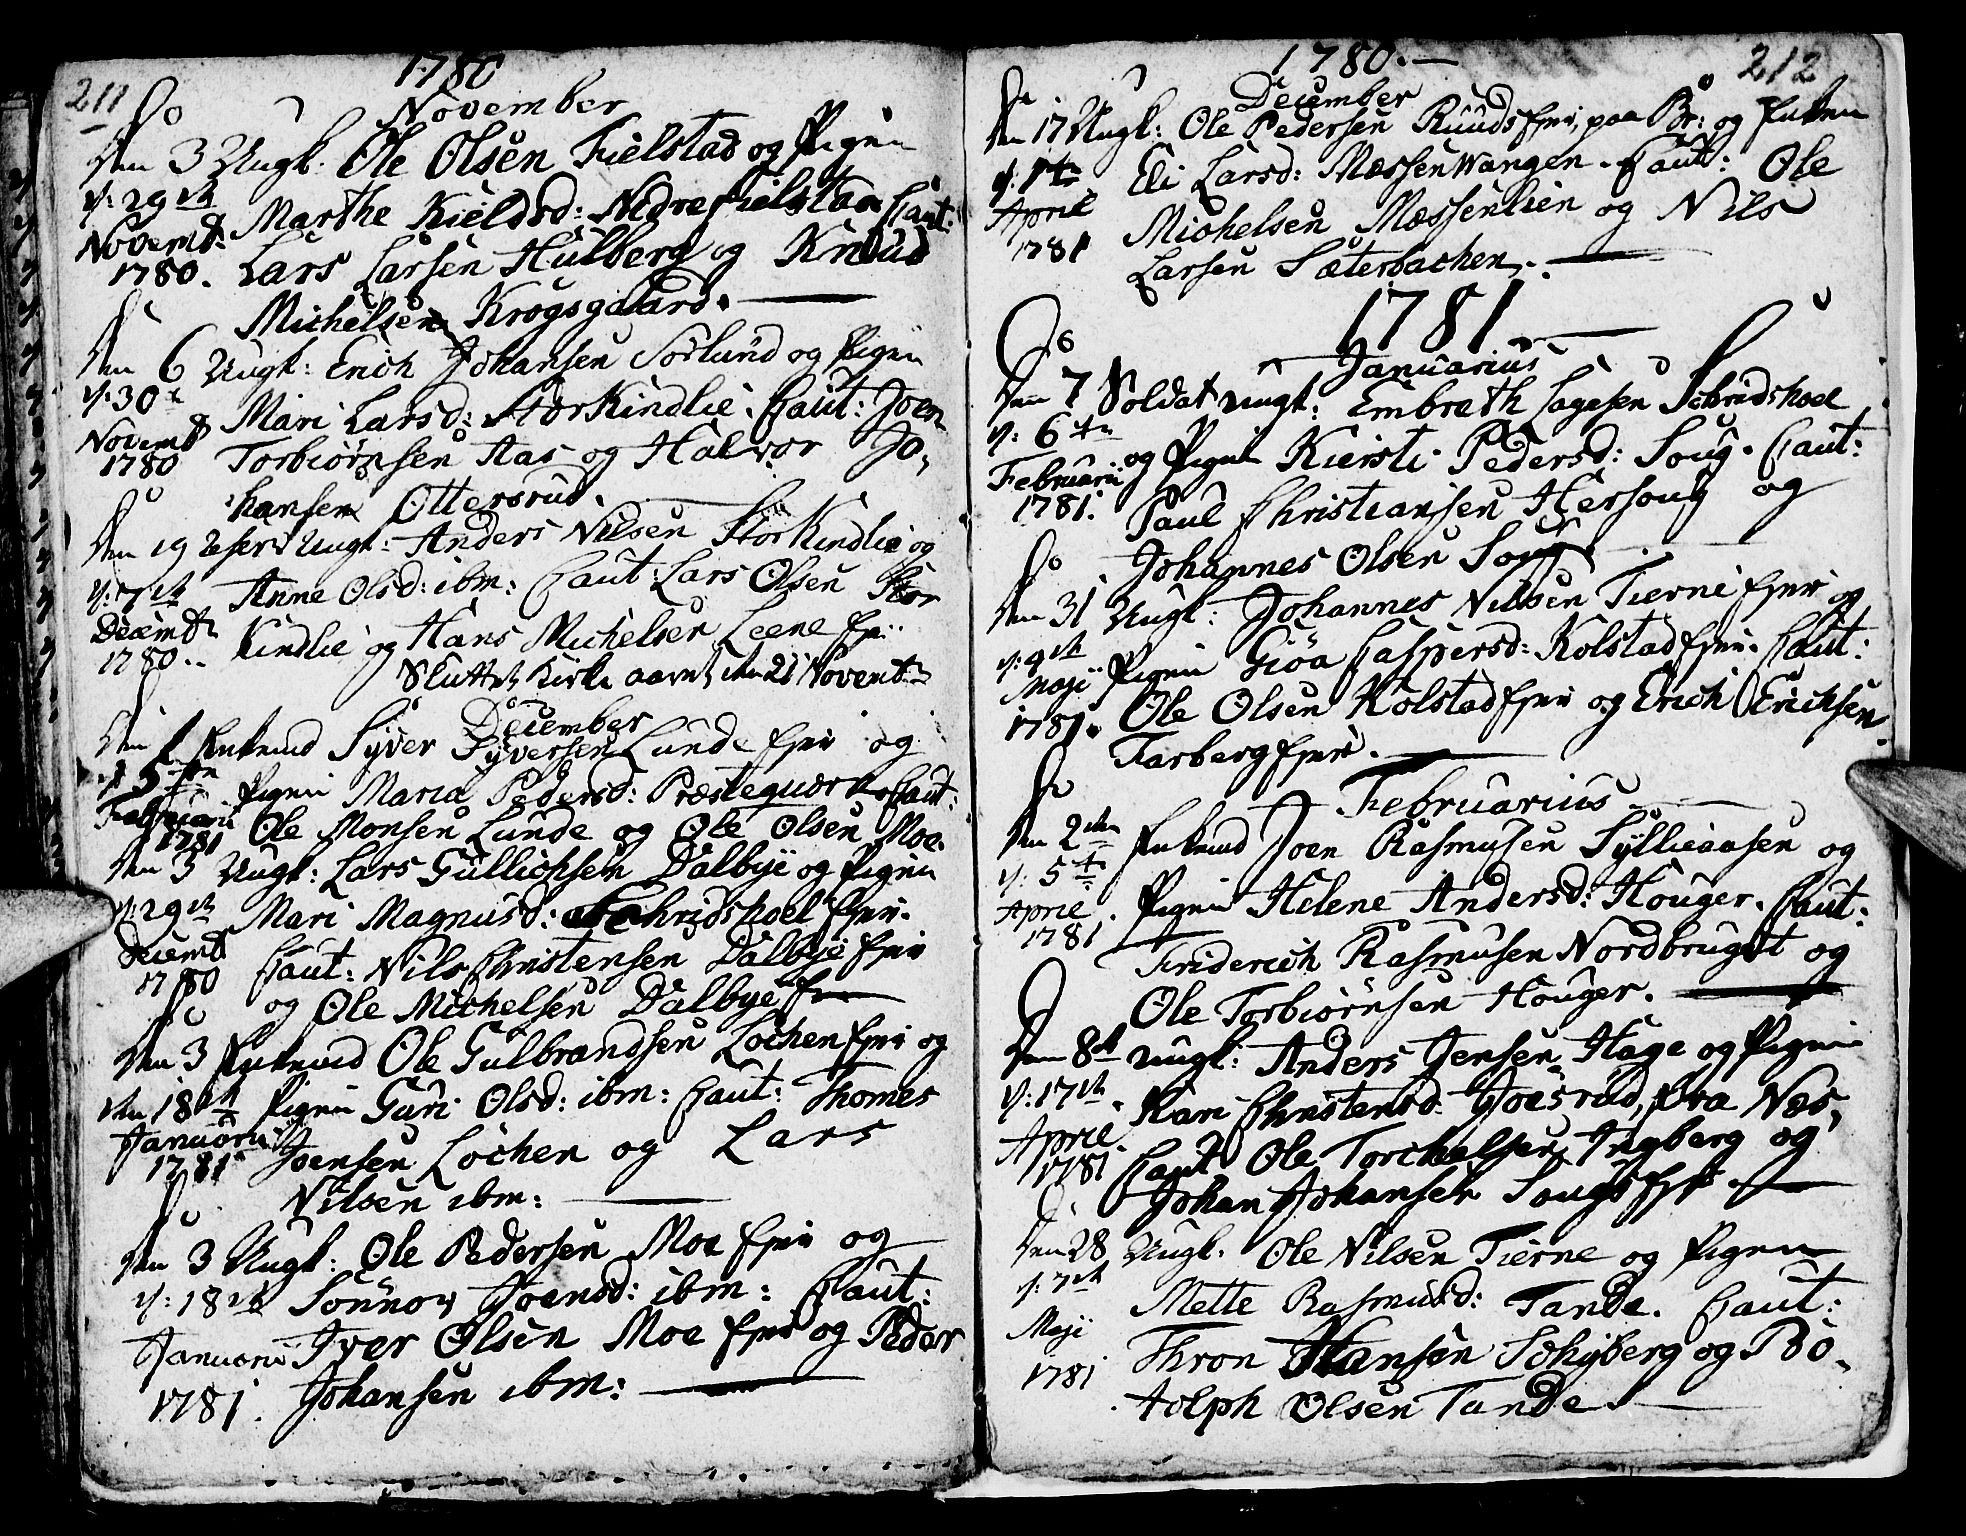 211
1780
November
Do
den 3 Ungk: Ole Olsen Fielstad og Pigen
v: 29de Marthe Kieldsd: Nedre Fielstad Caut:
Novemb: Lars Larsen Hulberg og Knud
1780. Michelsen Krogsgaard.
den 6 Ungk: Erich Johansen Sørlund og Pigen
v: 30te Mari Larsd: StorKindlie. Caut: Joen
Novembr Torbiørnsen Aas og Halvor Jo-
1780 hansen Ottersrud.
den 19 Ungk: Anders Nilsen StorKindlie og
v: 7de Anne Olsd: ibm: Caut: Lars Olsen Stor
Decembr Kindlie og Hans Michelsen Leene
1780.
Sluttet Kirke aaret den 21 Novembr
December
den 1 Enkemd Syver Syversen Lunde og
v: 5te Pigen Maria Pedersd: Præsteqværn Caut:
Februari 1781 Ole Monsen Lunde og Ole Olsen Moe.
den 3 Ungk: Lars Gullichsen Dalbye og Pigen
v: 29de Mari Magnusd: Schridshoel
Decembr Caut: Nils Christensen Dalbye
1780 og Ole Michelsen Dalbye
den 3 Enkemd Ole Gulbrandsen Lochen og
den 18de Pigen Guri Olsd: ibm: Caut: Thomes
Januarii Joensen Lochen og Lars
1781 Nilsen ibm:
den 3 Ungk: Ole Pedersen Moe og
v: 18de Sønnov Joensd: ibm: Caut:
Januarii Iver Olsen Moe og Peder
1781. Johansen ibm:
1780.
212
December
den 17 Ungk: Ole Pedersen Ruuds paa Br: og Enken
v: 1te Eli Larsd: MessenWangen. Caut: Ole
April Michelsen Messenlien og Nils
1781 Larsen Sæterbachen.
1781
Do
Januarius
den 7 Soldat ungk: Embreth Lagesen Schridshoel
v: 6te og Pigen Kiersti Pedersd: Soug. Caut:
Februarii Paul Christiansen Hersoug og
1781. Johannes Olsen Soug.
Do
den 31 Ungk: Johannes Nilsen Tierne og
v: 9de Pigen Giøa Caspersd: Kolstad Caut:
Maji Ole Olsen Kolstad og Erich Erichsen
1781. Farberg
Februarius
den 2den Enkemd Joen Rasmusen Syllieaasen og
v: 5te Pigen Helene Andersd: Houger. Caut:
April. Friderich Rasmusen Nordbrugat og
1781 Ole Torbiørnsen Houger.
den 8de ungk: Anders Jensen Hage og Pigen
v: 17de Kari Christensd: Joesrud, fra Næs,
April Caut: Ole Torchelsen Ingberg og
1781 Johan Johansen Sougs
den 28 Ungk. Ole Nilsen Tierne og Pigen
v: 7de Mette Rasmusd: Tande. Caut:
Maji Thron Hansen Schyberg og Bo-
1781 tolph Olsen Tande.